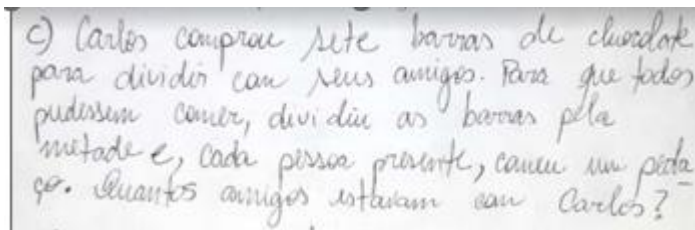 c) Carlos comprou sete barras de chocolate
para dividir com seus amigos. Para que todos
pudessem comer, dividiu as barras pela
metade e, cada pessoa presente, comeu um peda-
ço. Quantos amigos estavam com Carlos?